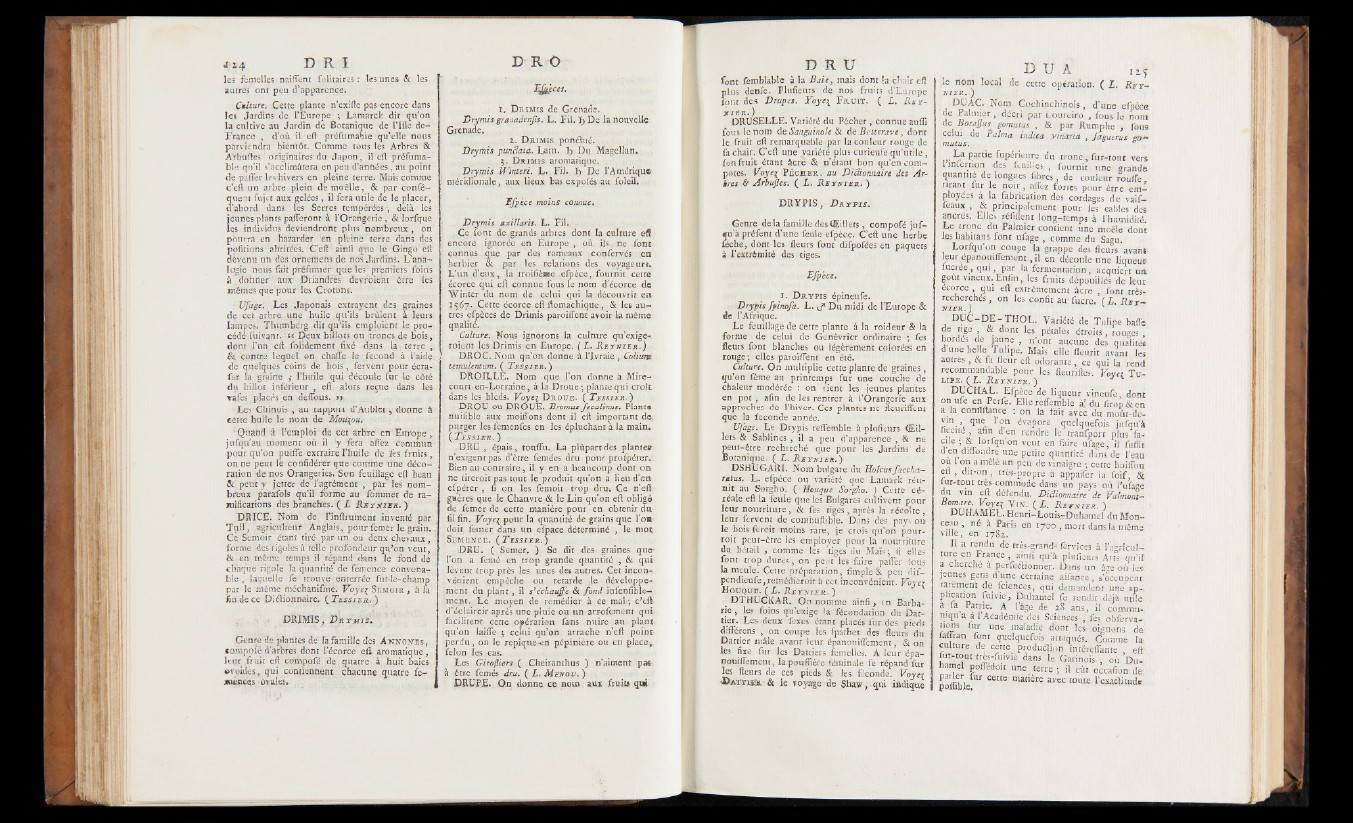 124 DRI
les femelles naiſſent ſolitaires : les unes & les
autres ont peu d'apparence.
Culture. Cette plante n'exiſte pas encore dans
les Jardins de l'Europe ; Lamarck dit qu'on
la cultive au Jardin de Botanique de l'Iſle de-
France , d'où il eſt préſumable qu'elle nous
parviendra bientôt. Comme tous les Arbres &
Arbuſtes originaires du Japon, il eſt préſuma-
ble qu'il s'acclimatera en peu d'années, au point
de paſſer les hivers en pleine terre. Mais comme
c'eſt un arbre plein de moëlle, & par conſé-
quent ſujet aux gelées, il ſera utile de le placer,
d'abord dans les Serres tempérées , delà les
jeunes plants paſſeront à l'Orangerie , & lorſque
les individus deviendront plus nombreux , on
pourra en hazarder en pleine terre dans des
poſitions abritées. C'eſt ainſi que le Gingo eſt
devenu un des ornemens de nos Jardins. L'ana-
logie nous fait préſumer que les premiers ſoins
à donner aux Driandres devroient être les
mêmes que pour les Crotons.
Uſage. Les Japonais extrayent des graines
de cet arbre une huile qu'ils brûlent à leurs
lampes. Thumberg dit qu'ils emploient le pro-
cédé ſuivant. « Deux billots ou troncs de bois,
dont l'un eſt ſolidement fixé dans la terre ,
& contre lequel on chaſſe le ſecond à l'aide
de quelques coins de bois, ſervent pour écra-
ſer la graine ; l'huile qui découle ſur le côté
du billot inférieur , eſt alors reçue dans les
vaſes placés en deſſous. »
Les Chinois , au rapport d'Aublet , donne à
cette huile le nom de Mouyou.
Quand à l'emploi de cet arbre en Europe ,
juſqu'au moment où il y ſera aſſez commun
pour qu'on puiſſe extraire l'huile de ſes fruits ,
on ne peut le conſidérer que comme une déco-
ration de nos Orangeries. Son feuillage eſt beau
& peut y jetter de l'agrément , par les nom-
breux paraſols qu'il forme au ſommet de ra-
mifications des branches. ( L. REYNIER. )
DRICE. Nom de l'inſtrument inventé par
Tull, agriculteur Anglais, pour ſemer le grain.
Ce Semoir étant tiré par un ou deux chevaux ,
forme des rigoles à telle profondeur qu'on veut,
& en même temps il répand dans le fond de
chaque rigole la quantité de ſemence convena-
ble , laquelle ſe trouve enterrée ſur-le-champ
par le même méchaniſme. Voyez SEMOIR , à la
fin de ce Dictionnaire. ( TESSIER. )
DRIMIS, DRYMIS.
Genre de plantes de la famille des ANNONES,
compoſé d'arbres dont l'écorce eſt aromatique ,
leur fruit eſt compoſé de quatre à huit baies
ovoides, qui contiennent chacune quatre ſe-
mences ovales.
DRO
Eſpèces.
1. DRIMIS de Grenade.
Drymis granadenſis. L. Fil. ♄ De la nouvelle
Grenade.
2. DRIMIS ponctué.
Drymis punctata. Lam. ♄ Du Magellan.
3. DRIMIS aromatique.
Drymis Winteri. L. Fil. ♄ De l'Amérique
méridionale, aux lieux bas expoſés au ſoleil.
Eſpèce moins connue.
Drymis axillaris. L. Fil.
Ce ſont de grands arbres dont la culture eſt
encore ignorée en Europe , où ils ne ſont
connus que par des rameaux conſervés en
herbier & par les relations des voyageurs.
L'un d'eux , la troiſième eſpèce, fournit cette
écorce qui eſt connue ſous le nom d'écorce de
Winter du nom de celui qui la découvrit en
1567. Cette écorce eſt ſtomachique , & les au-
tres eſpèces de Drimis paroiſſent avoir la même
qualité.
Culture. Nous ignorons la culture qu'exige-
roient les Drimis en Europe. ( L. REYNIER. )
DROC. Nom qu'on donne à l'Ivraie , Lolium
temulentum. ( TESSIER. )
DROILLÉ. Nom que l'on donne à Mire-
court en-Lorraine, à la Droue ; plante qui croît
dans les bleds. Voyez DROUE. ( TESSIER. )
DROU ou DROUE. Bromus ſecalinus. Plante
nuiſible aux moiſſons dont il eſt important de
purger les ſemenſes en les épluchant à la main.
( TESSIER. )
DRU , épais, touffu. La plûpart des plantes
n'exigent pas d'être ſemées dru pour proſpérer.
Bien au contraire, il y en a beaucoup dont on
ne tireroit pas tout le produit qu'on a lieu d'en
eſpérer , ſi on les ſemoit trop dru. Ce n'eſt
guères que le Chanvre & le Lin qu'on eſt obligé
de ſemer de cette manière pour en obtenir du
fil fin. Voyez pour la quantité de grains que l'on
doit ſemer dans un eſpace déterminé , le mot
SEMENCE. ( TESSIER. )
DRU. ( Semer. ) Se dit des graines que
l'on a ſemé en trop grande quantité , & qui
lèvent trop près les unes des autres. Cet incon-
vénient empêche ou retarde le développe-
ment du plant , il s'échauffe & fond inſenſible-
ment. Le moyen de remédier à ce mal, c'eſt
d'éclaircir après une pluie ou un arroſement qui
facilitent cette opération ſans nuire au plant
qu'on laiſſe ; celui qu'on arrache n'eſt point
perdu, on le repique en pépinière ou en place,
ſelon les cas.
Les Giroſliers ( Cheiranthus ) n'aiment pas
à être ſemés dru. ( L. MENOU. )
DRUPE. On donne ce nom aux fruits qui
DRU
ſont ſemblable à la Baie, mais dont la chair eſt
plus denſe. Pluſieurs de nos fruits d'Europe
ſont des Drupes. Voyez FRUIT. ( L. REY-
NIER. )
DRUSELLE. Variété du Pêcher, connue auſſi
ſous le nom de Sanguinole & de Betterave, dont
le fruit eſt remarquable par la couleur rouge de
ſa chair. C'eſt une variété plus curieuſe qu'utile,
ſon fruit étant âcre & n'étant bon qu'en com-
potes. Voyez PÊCHER, au Dictionnaire des Ar-
bres & Arbuſtes. ( L. REYNIER. )
DRYPIS, DRYPIS.
Genre de la famille des Œillets, compoſé juſ-
qu'à préſent d'une ſeule eſpèce. C'eſt une herbe
ſèche, dont les fleurs ſont diſpoſées en paquets
à l'extrêmité des tiges.
Eſpèce.
1. DRYPIS épineuſe.
Drypis ſpinoſa. L. ♂ Du midi de l'Europe &
de l'Afrique.
Le feuillage de cette plante à la roideur & la
forme de celui de Genévrier ordinaire ; ſes
fleurs ſont blanches ou légèrement colorées en
rouge ; elles paroiſſent en été.
Culture. On multiplie cette plante de graines,
qu'on ſème au printemps ſur une couche de
chaleur modérée : on tient les jeunes plantes
en pot , afin de les rentrer à l'Orangerie aux
approches de l'hiver. Ces plantes ne fleuriſſent
que la ſeconde année.
Uſage. Le Drypis reſſemble à pluſieurs Œil-
lets & Sablines , il a peu d'apparence , & ne
peut-être recherché que pour les Jardins de
Botanique. ( L. REYNIER. )
DSHUGARI. Nom bulgare du Holcus ſaccha-
ratus. L. eſpèce ou variété que Lamark réu-
nit au Sorgho. ( Houque Sorgho. ) Cette cé-
réale eſt la ſeule que les Bulgares cultivent pour
leur nourriture, & ſes tiges, après la récolte,
leur ſervent de combuſtible. Dans des pays où
le bois ſeroit moins rare, je crois qu'on pour-
roit peut-être les employer pour la nourriture
du bétail , comme les tiges du Maïs ; ſi elles
ſont trop dures, on peut les faire paſſer ſous
la meule. Cette préparation, ſimple & peu diſ-
pendieuſe, remédieroit à cet inconvénient. Voyez
HOUQUE. ( L. REYNIER. )
DTHUCKAR. On nomme ainſi, en Barba-
rie , les ſoins qu'exige la fécondation du Dat-
tier. Les deux ſexes étant placés ſur des pieds
différens , on coupe les ſpathes des fleurs du
Dattier mâle avant leur épanouiſſement, & on
les fixe ſur les Dattiers femelles. A leur épa-
nouiſſement, la pouſſière ſéminale ſe répand ſur
les fleurs de ces pieds & les féconde. Voyez
DATTIER & le voyage de Shaw , qui indique
DUA 125
le nom local de cette opération. ( L. REY-
NIER. )
DUAC. Nom Cochinchinois , d'une eſpèce
de Palmier , décri par Loureiro , ſous le nom
de Boraſſus gomutus , & par Rumphe , ſous
celui de Palma indica vinaria , ſaguerus go-
mutus.
La partie ſupérieure du tronc, ſur-tout vers
l'inſertion des feuilles , fournit une grande
quantité de longues fibres , de couleur rouſſe,
tirant ſur le noir, aſſez fortes pour être em-
ployées à la fabrication des cordages de vaiſ-
ſeaux , & principalement pour les cables des
ancres. Elles réſiſtent long-temps à l'humidité.
Le tronc du Palmier contient une moële dont
les habitans font uſage , comme du Sagu.
Lorſqu'on coupe la grappe des fleurs avant
leur épanouiſſement , il en découle une liqueur
ſucrée , qui , par la fermentation, acquiert un
goût vineux. Enfin, les fruits dépouillés de leur
écorce , qui eſt extrêmement âcre , ſont très-
recherchés , on les confit au ſucre. ( L. REY-
NIER. )
DUC-DE-THOL. Variété de Tulipe baſſe
de tige , & dont les pétales étroits , rouges ,
bordés de jaune , n'ont aucune des qualités
d'une belle Tulipe. Mais elle fleurit avant les
autres , & ſa fleur eſt odorante , ce qui la rend
recommandable pour les fleuriſtes. Voyez TU-
LIPE. ( L. REYNIER. )
DUCHAL. Eſpèce de liqueur vineuſe, dont
on uſe en Perſe. Elle reſſemble au ſirop & en
a la conſiſtance : on la fait avec du moût-de-
vin , que l'on évapore quelquefois juſqu'à
ſiccité , afin d'en rendre le tranſport plus fa-
cile ; & lorſqu'on veut en faire uſage, il ſuffit
d'en diſſoudre une petite quantité dans de l'eau
où l'on a mêlé un peu de vinaigre ; cette boiſſon
eſt , dit-on , très-propre à appaiſer la ſoif, &
ſur-tout très-commode dans un pays où l'uſage
du vin eſt défendu. Dictionnaire de Valmont-
Bomare. Voyez VIN. ( L. REYNIER. )
DUHAMEL. Henri-Louis-Duhamel du Mon-
ceau , né à Paris en 1700 , mort dans la même
ville, en 1782.
Il a rendu de très-grands ſervices à l'agricul-
ture en France , ainſi qu'à pluſieurs Arts qu'il
a cherché à perfectionner. Dans un âge où les
jeunes gens d'une certaine aiſance , s'occupent
rarement de ſciences, qui demandent une ap-
plication ſuivie, Duhamel ſe rendit déjà utile
à ſa Patrie. A l'âge de 28 ans, il commu-
niqu'à à l'Académie des Sciences , ſes obſerva-
tions ſur une maladie dont les oignons de
ſaffran ſont quelquefois attaqués. Comme la
culture de cette production intéreſſante , eſt
ſur-tout très-ſuivie dans le Gatinois , où Du-
hamel poſſédoit une terre ; il eût occaſion de
parler ſur cette matière avec toute l'exactitude
poſſible.